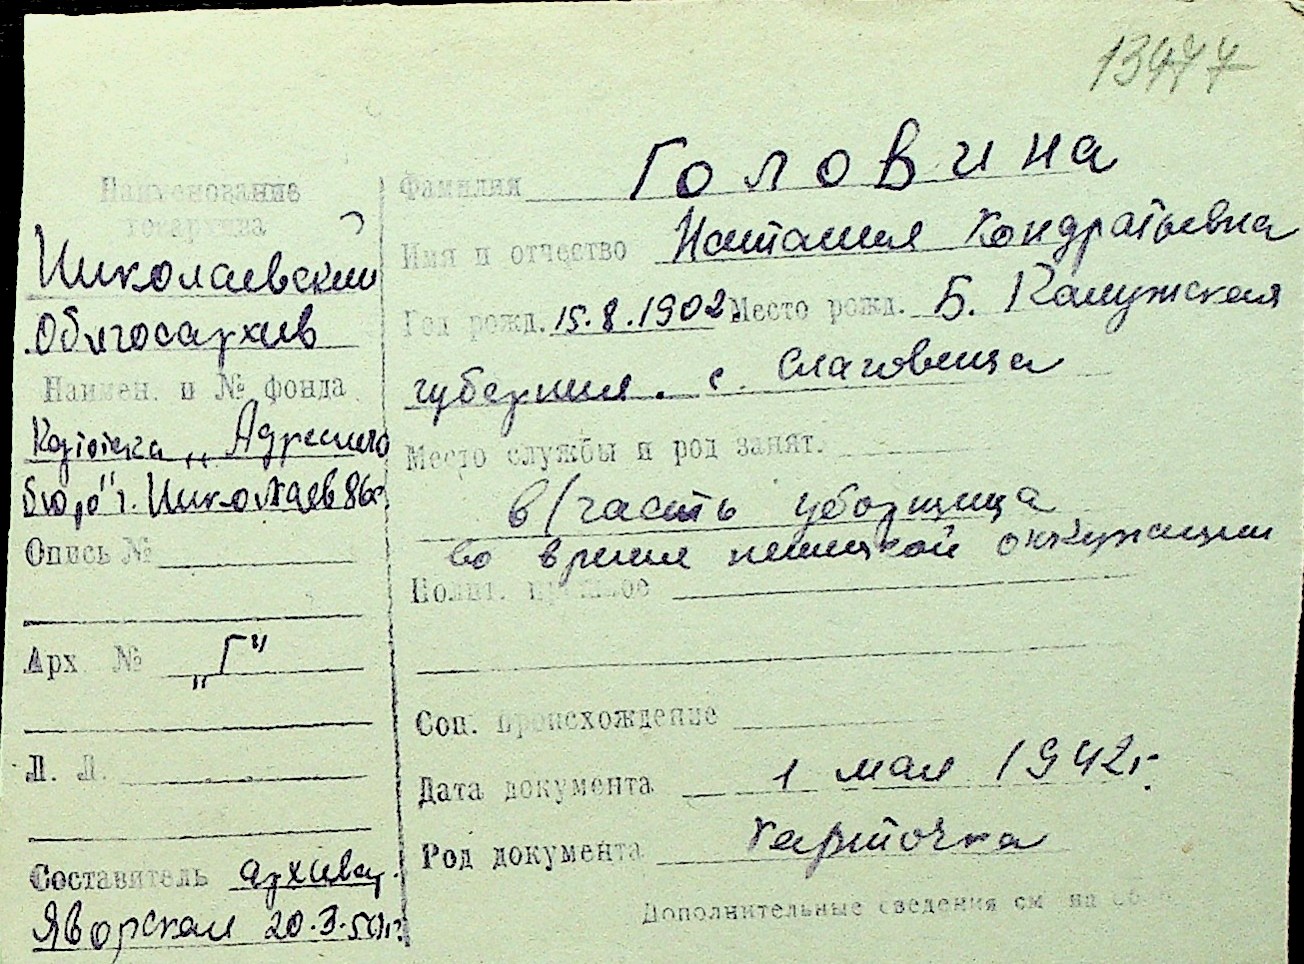 13477
Наименование
госархива
Николаевский
Облгосархив
Наимен. и № фонда
Картотека „Адресного
бюро" г. Николаев 86с
Опись №
Арх №
„Г"
Л. Л.
Составитель архивар.
Яворская 20.3.50 г.
Фамилия Головина
Имя и отчество Наталия Кондратьевна
Год рожд. 15.8.1902 Место рожд. Б. Калужская
губерния. с. Слаговеща
Место службы и род занят.
в/часть уборщица
во время немецкой оккупации
Полит. прошлое
Соц. происхождение
Дата документа 1 мая 1942 г.
Род документа карточка
Дополнительные сведения см на